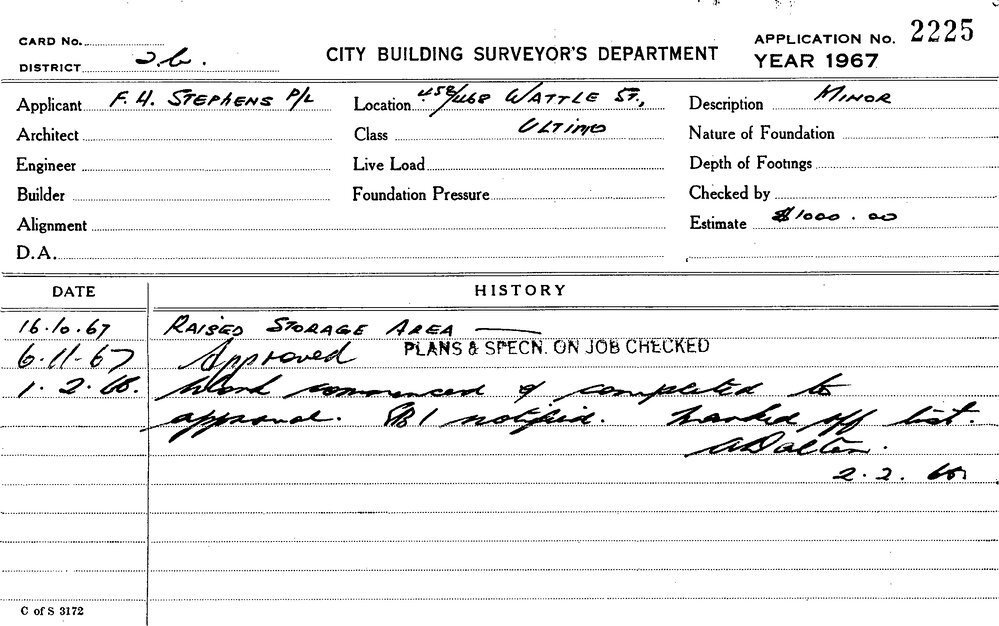 CARD No.
DISTRICT 2b.
CITY BUILDING SURVEYOR'S DEPARTMENT
APPLICATION No. 2225
YEAR 1967
Applicant F. H. STEPHENS P/L
Location 458/468 WATTLE ST.,
Description MINOR
Architect
Class ULTIMO
Nature of Foundation
Engineer
Live Load
Depth of Footings
Builder
Foundation Pressure
Checked by
Alignment
Estimate $1000.00
D.A.
DATE HISTORY
16.10.67 RAISED STORAGE AREA
6.11.67 Approved PLANS & SPECN. ON JOB CHECKED
1.2.68. Work commenced & completed to
approval. notified. Marked off list.
ADalton.
2.2.68.
C of S 3172